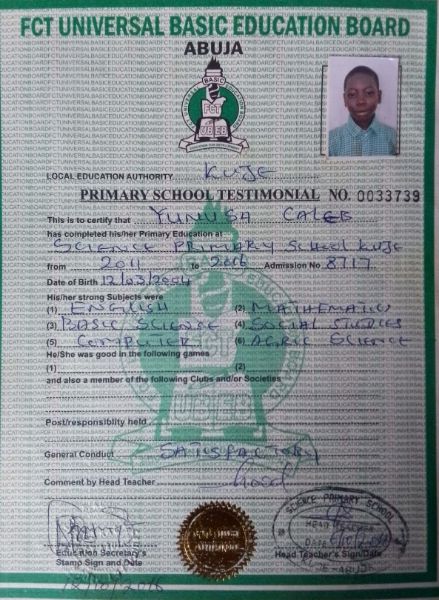 FCT UNIVERSAL BASIC EDUCATION BOARD
ABUJA
UNIVERSAL BASIC
FCT
UBEB
LOCAL EDUCATION AUTHORITY KUJE
PRIMARY SCHOOL TESTIMONIAL NO. 0033739
This is to certify that YUNUSA CALEB
has completed his/her Primary Education at
SCIENCE PRIMARY SCHOOL KUJE
from 2011 to 2016 Admission No 8717
Date of Birth 12/03/2004
His/her strong Subjects were
(1) ENGLISH (2) MATHEMATICS
(3) BASIC SCIENCE (4) SOCIAL STUDIES
(5) COMPUTER (6) AGRIC SCIENCE
He/She was good in the following games
(1) (2)
and also a member of the following Clubs and/or Societies
Post/responsiblity held
General Conduct SATISFACTORY
Comment by Head Teacher Good
SCIENCE PRIMARY SCHOOL
HEAD TEACHER
DATE
KUJE-ABUJA
Education Secretary's
Stamp Sign and Date
Head Teacher's Sign/Date
12/10/2016